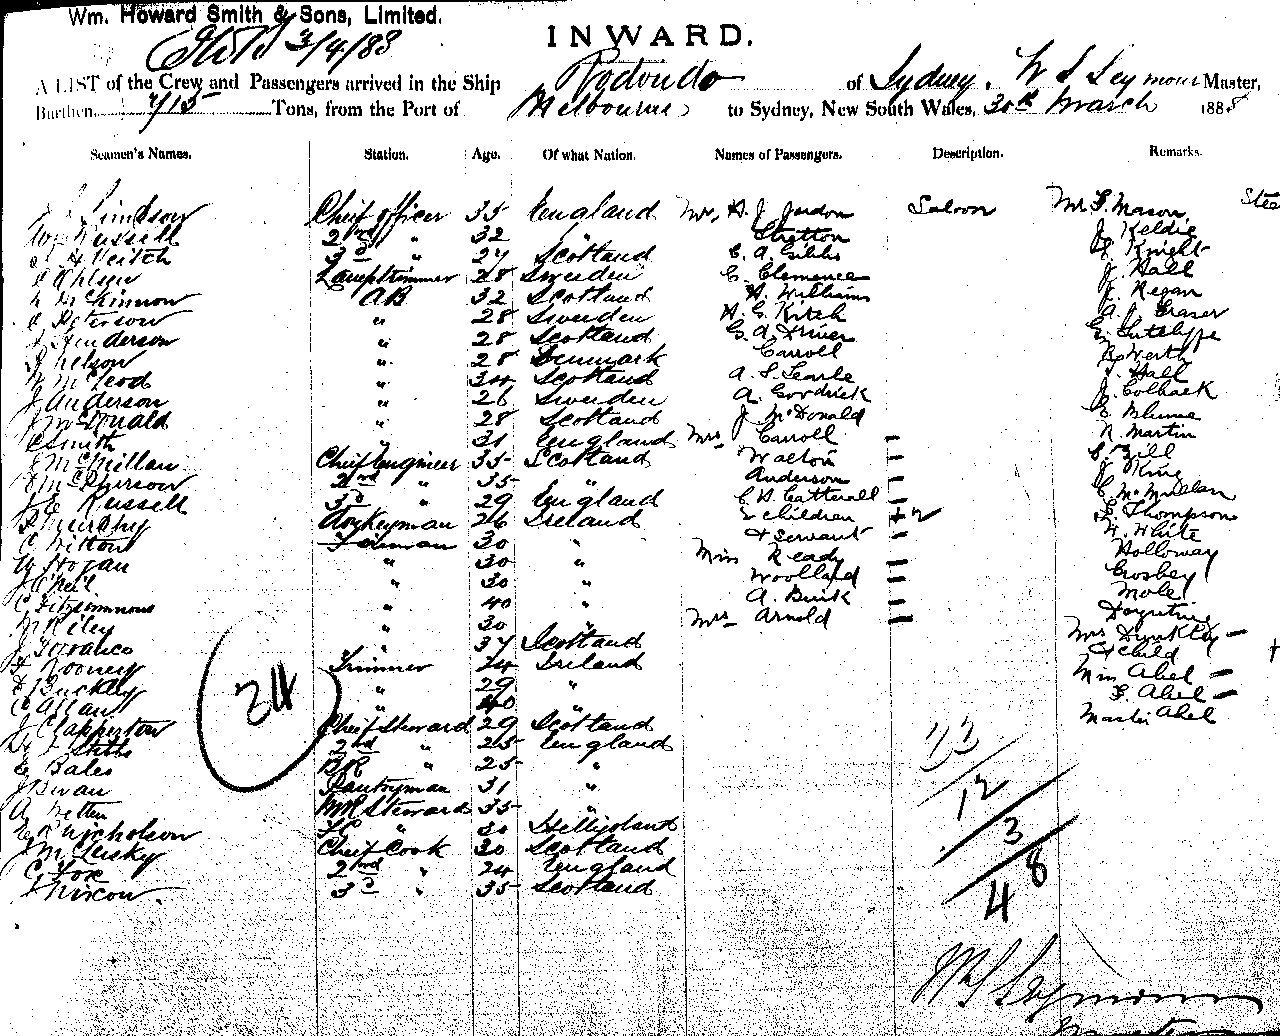 Wm. Howard Smith & Sons, Limited.
3/4/88
INWARD.
A LIST of the Crew and Passengers arrived in the Ship Rodondo of Sydney, W S Seymour Master,
Burthen 715 Tons, from the Port of Melbourne to Sydney, New South Wales, 30th March 1888
Seamen's Names. Station. Age. Of what Nation. Names of Passengers. Description. Remarks.
Chief officer 35 England Mr, H. J. Jordon Saloon Mr. F. Mason, Stee
W Russell 2nd " 32 " Stretton J. Keldie
H Veitch 3d " 27 Scotland E. A. Gibbs Knight
C Ohlsen Lamptrimmer 28 Sweden C. Clemence J. Hall
McKinnon AB 32 Scotland H. Williams J. Regan
C Peterson " 28 Sweden H. E. Kitch A. J. Fraser
J Henderson " 28 Scotland G. A. Driver E. Sutcliffe
J Nelson " 28 Denmark Carroll Werth
McLeod " 34 Scotland A. S. Searle Hall
J Anderson " 26 Sweden A. Goodrick J. Colback
J McDonald " 28 Scotland J. McDonald E. Blume
C Smith " 31 England Mrs Carroll – R. Martin
J McMillan Chief Engineer 35 Scotland Walton – Gill
McPherson 2nd " 35 " Anderson – J. King
J E Russell 3d " 29 England – E McMillan
P Murphy Donkeyman 26 Ireland 2 children + 2 Thompson
C Witton Fireman 30 " & Servant – White
W Hogan " 30 " Miss Ready – Holloway
J O'Neil " 30 " Woollard – Crosbey
C Fitzsimmons " 40 " A. Buik – Mole
J Riley " 30 " Mrs Arnold –
J " 37 Scotland Mrs Dunkley –
Rooney Trimmer 24 Ireland & child +
Buckley " 29 " Miss Abel –
Allan " 40 " F. Abel –
J Clapperton Chief Steward 29 Scotland Master Abel
2nd " 25 England
E Bales BR " 25 "
J Swan Pantryman 31 "
A Wetten MR Steward 35 "
Nicholson " 30 Helligoland
McLusky Chief Cook 30 Scotland
C Fox 2nd " 24 England
Nixon. 3d " 35 Scotland
34
33
12
3
48
W S Seymour